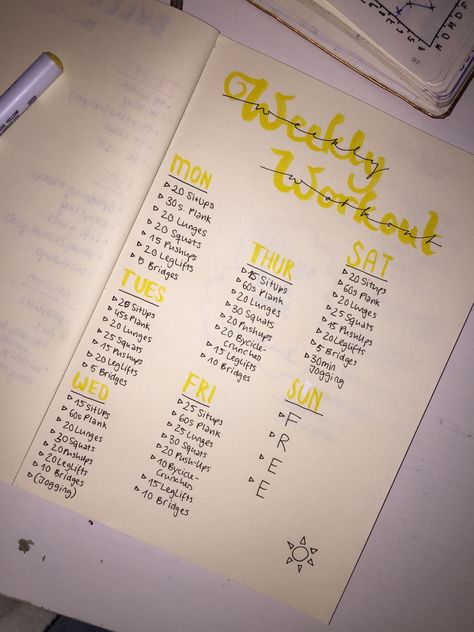 Weekly
weekly
Workout
workout
MON
20 SitUps
30s. Plank
20 Lunges
20 Squats
15 Pushups
20 LegLifts
5 Bridges
TUES
25 SitUps
45s Plank
20 Lunges
25 Squats
15 Pushups
20 LegLifts
5 Bridges
WED
15 SitUps
60s Plank
20 Lunges
30 Squats
20 Pushups
20 LegLifts
10 Bridges
(Jogging)
THUR
15 SitUps
60s Plank
20 Lunges
30 Squats
20 Pushups
20 Bycicle-
crunches
15 LegLifts
10 Bridges
FRI
25 SitUps
60s Plank
25 Lunges
30 Squats
20 Push-Ups
10 Bycicle-
Crunches
15 LegLifts
10 Bridges
SAT
20 Situps
60s Plank
20 Lunges
25 Squats
15 Pushups
20 LegLifts
5 Bridges
30min
Jogging
SUN
F
R
E
E